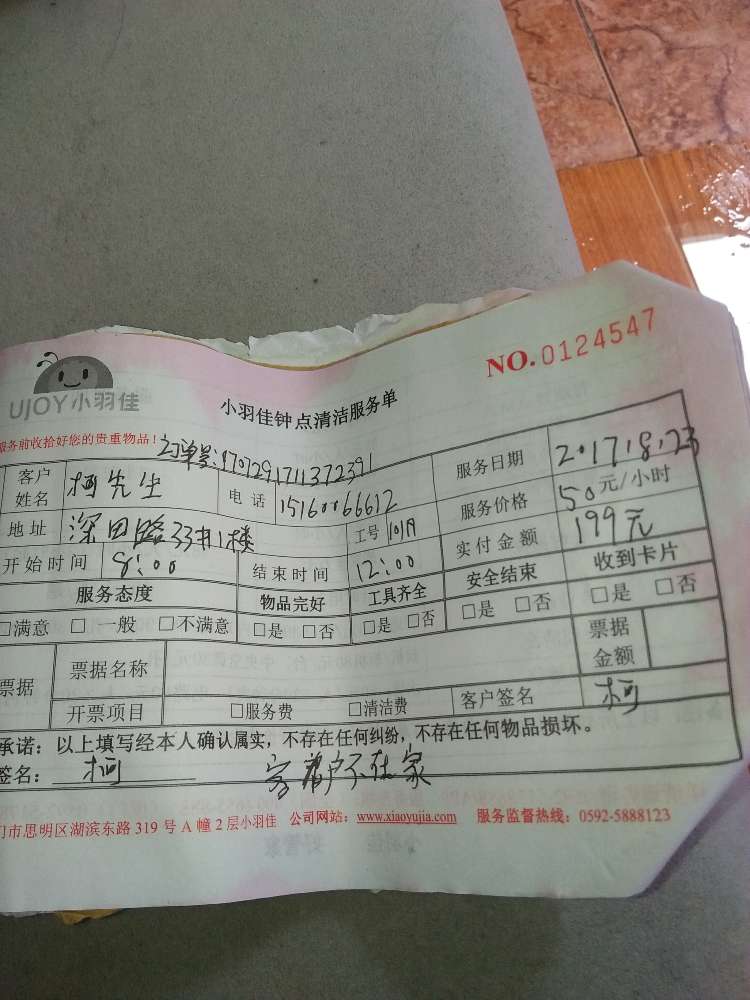 NO.0124547
UJOY小羽佳
小羽佳钟点清洁服务单
服务前收拾好您的贵重物品!
订单号:1707291711372391
服务日期 2017.8.23
客户姓名 柯先生 电话 15160066612
服务价格 50元/小时
地址 深田路33#1楼 工号
实付金额 199元
开始时间 8:00 结束时间 12:00 安全结束 收到卡片
服务态度 物品完好 工具齐全 □是 □否 □是 □否
□满意 □一般 □不满意 □是 □否 □是 □否
票据 票据名称 票据金额
开票项目 □服务费 □清洁费 客户签名 柯
承诺:以上填写经本人确认属实,不存在任何纠纷,不存在任何物品损坏。
签名: 柯 客户不在家
门市思明区湖滨东路 319 号 A 幢 2 层小羽佳 公司网站:www.xiaoyujia.com 服务监督热线:0592-5888123